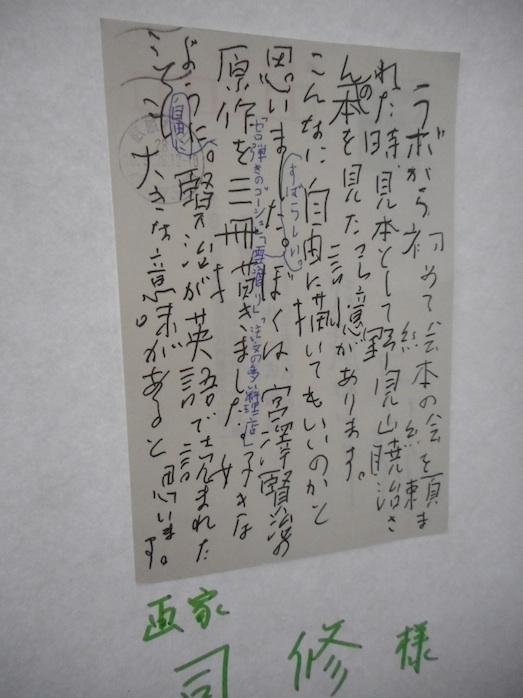 ラボから初めて絵本の絵を頼ま
れた時、見本として野見山暁治さ
んの本を見た記憶があります。
こんなに自由に描いてもいいのかと
すばらしい。
思いました。ぼくは、宮澤賢治の
「セロ弾きのゴーシュ」「雪渡り」「注文の多い料理店」
原作を三冊描きました。好きな
ように。賢治が英語で読まれた
自由に
大きな意味があると思います。
画家
司 修 様